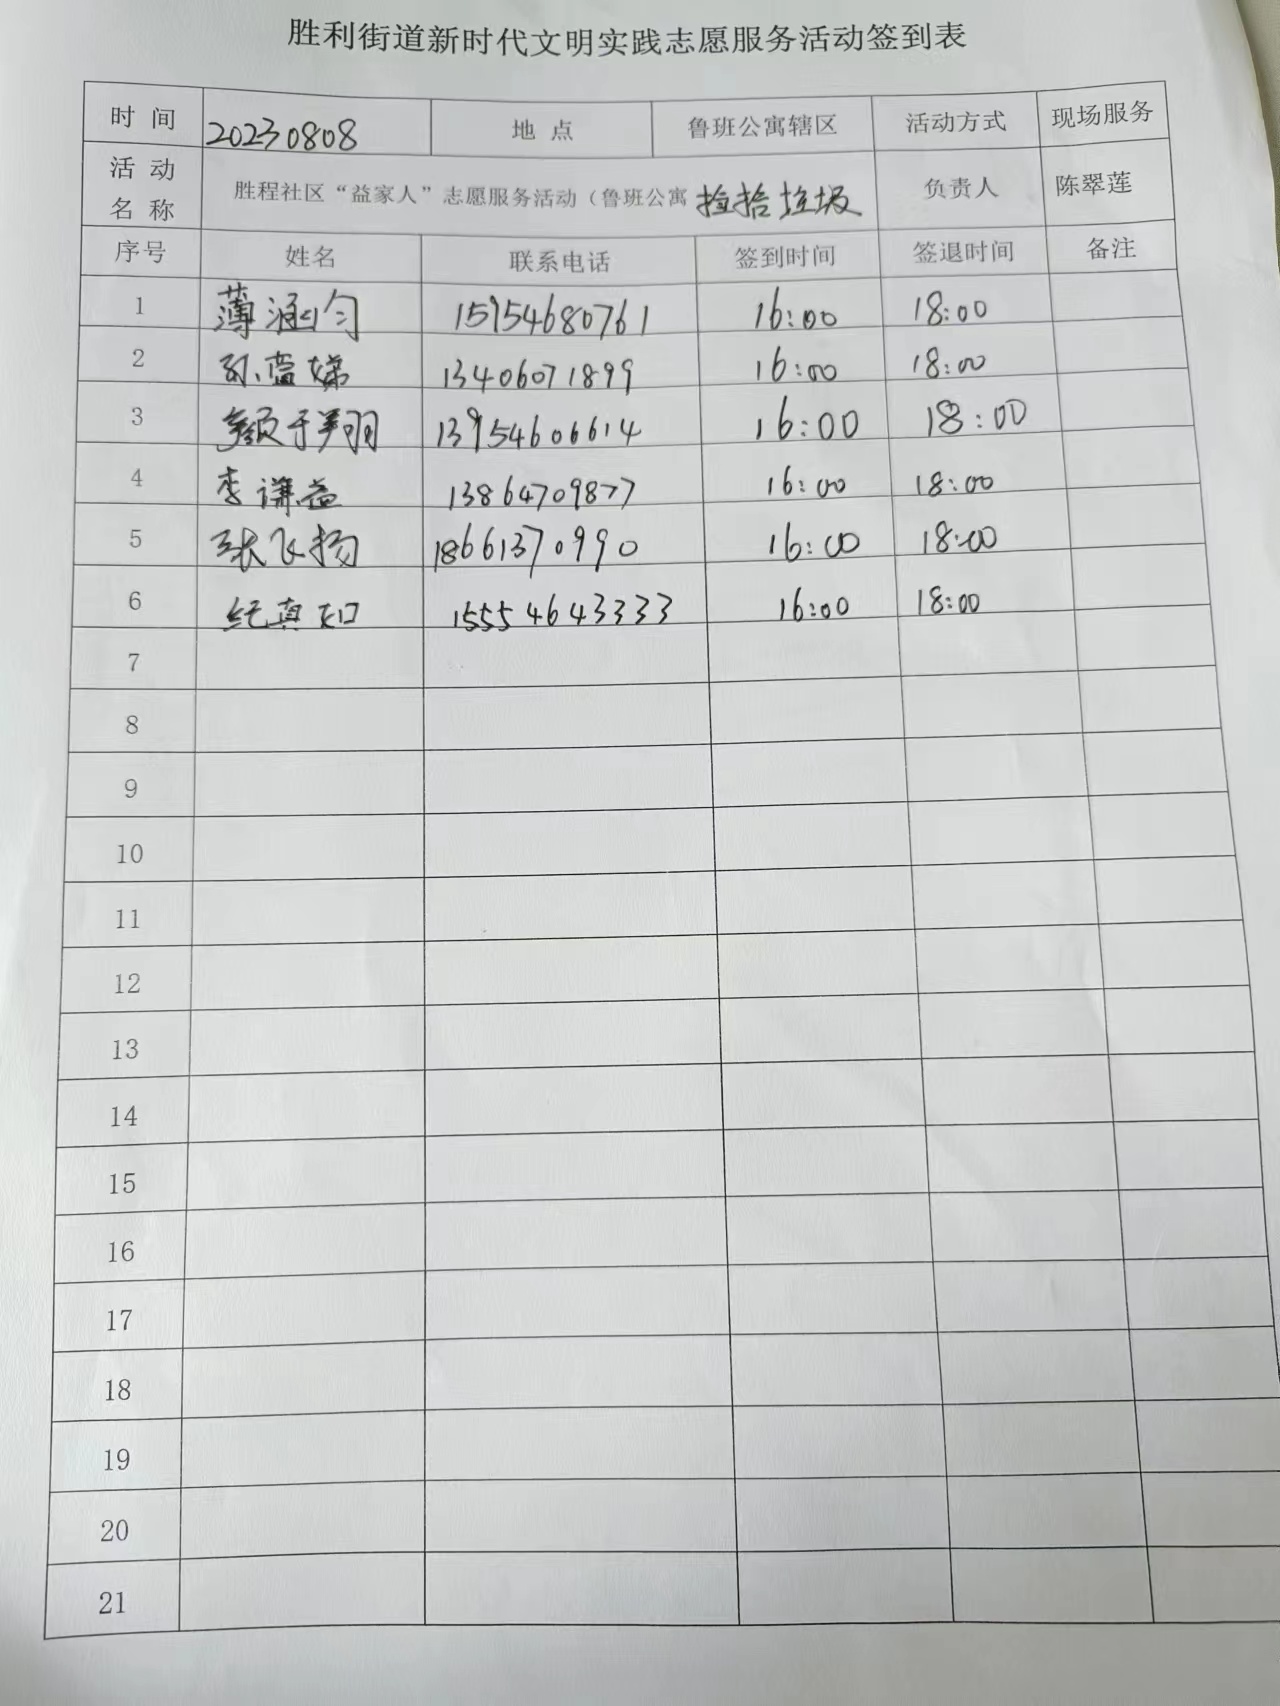 胜利街道新时代文明实践志愿服务活动签到表
时 间 20230808 地 点 鲁班公寓辖区 活动方式 现场服务
活 动 名 称 胜程社区“益家人”志愿服务活动（鲁班公寓 捡拾垃圾 负责人 陈翠莲
序号 姓名 联系电话 签到时间 签退时间 备注
1 薄涵匀 15954680761 16:00 18:00
2 孙蓝娣 13406071899 16:00 18:00
3 于翔羽 13954606614 16:00 18:00
4 李谦益 13864709877 16:00 18:00
5 张飞扬 18661370990 16:00 18:00
6 纪真知 15554643333 16:00 18:00
7
8
9
10
11
12
13
14
15
16
17
18
19
20
21